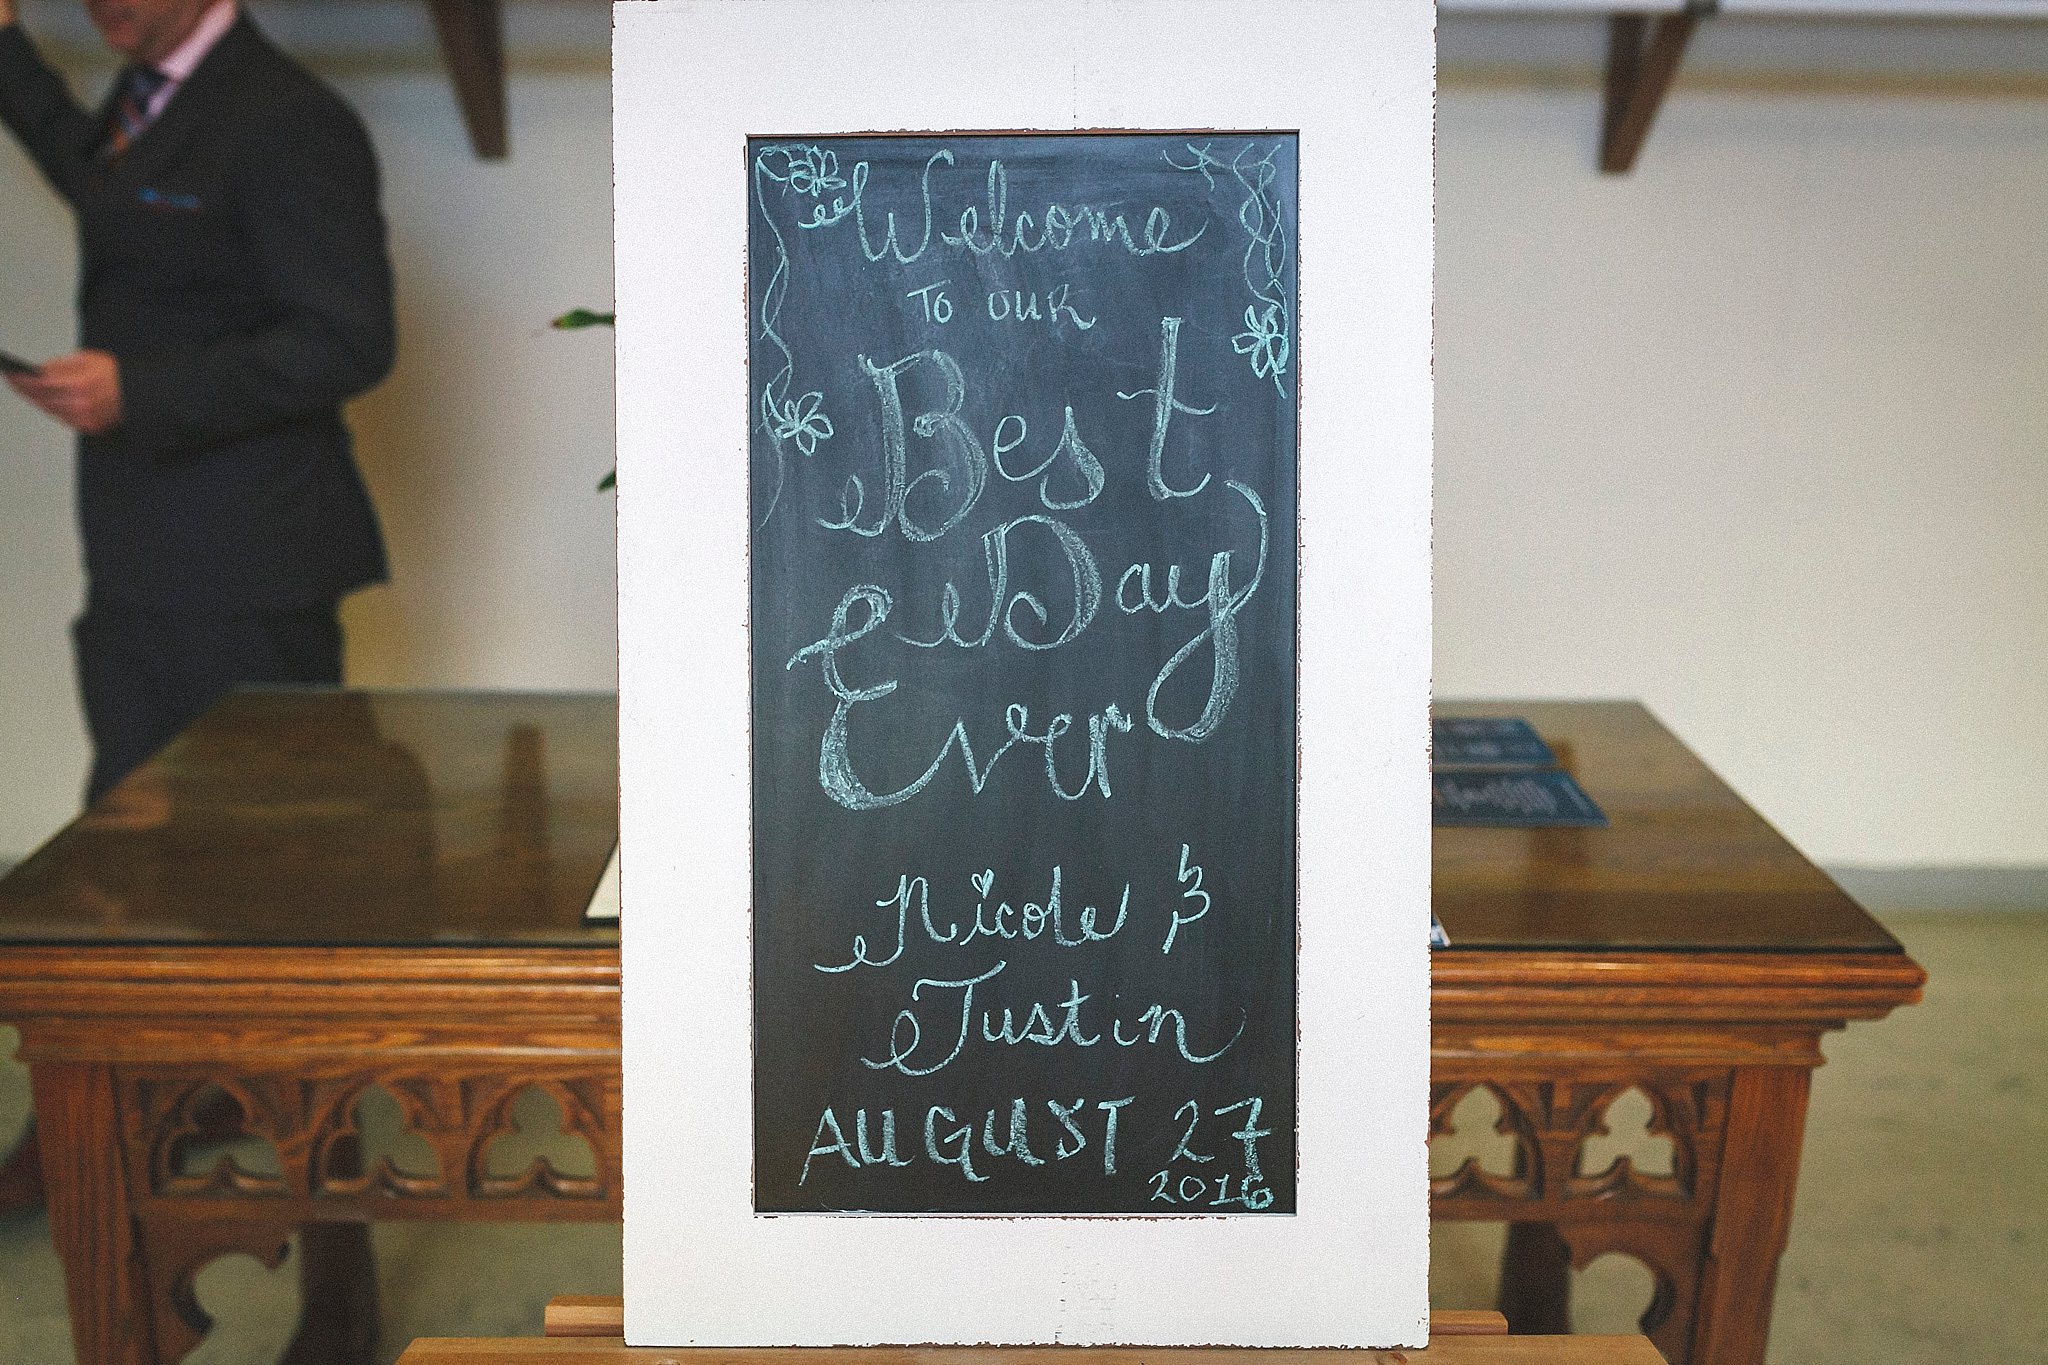 Welcome
TO OUR
Best
Day
Ever
Nicole &
Justin
AUGUST 27
2016